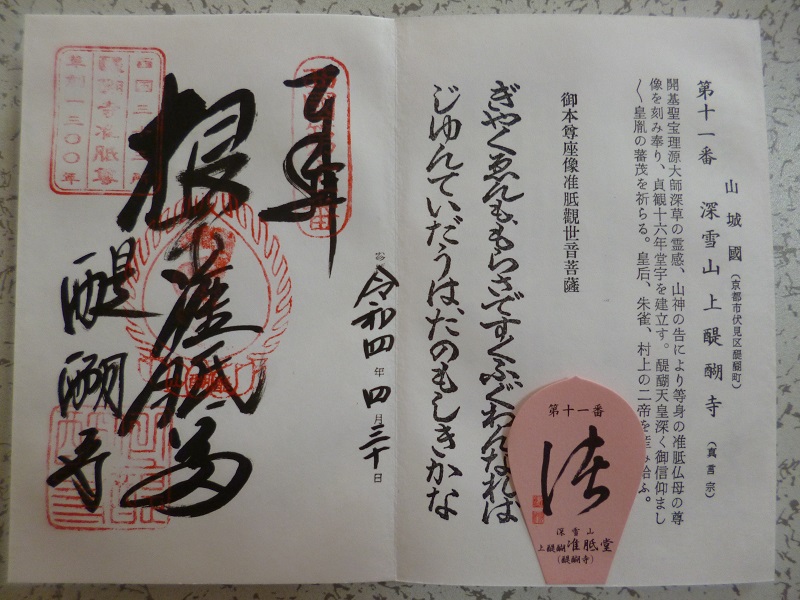 第十一番
山城國(京都市伏見区醍醐町)
深雪山上醍醐寺(真言宗)
開基聖宝理源大師深草の霊感、山神の告により等身の准胝仏母の尊
像を刻み奉り、貞観十六年堂宇を建立す。醍醐天皇深く御信仰まし
〱皇胤の蕃茂を祈らる。皇后、朱雀、村上の二帝を
給ふ。
御本尊座像准胝觀世音菩薩
ぎやくゑんももらさですくふぐわんなれば、
じゆんていだうは、たのもしきかな
第十一番
深雪山
上醍醐准胝堂
(醍醐寺)
奉拝
令和四年四月三十日
准胝
醍醐寺